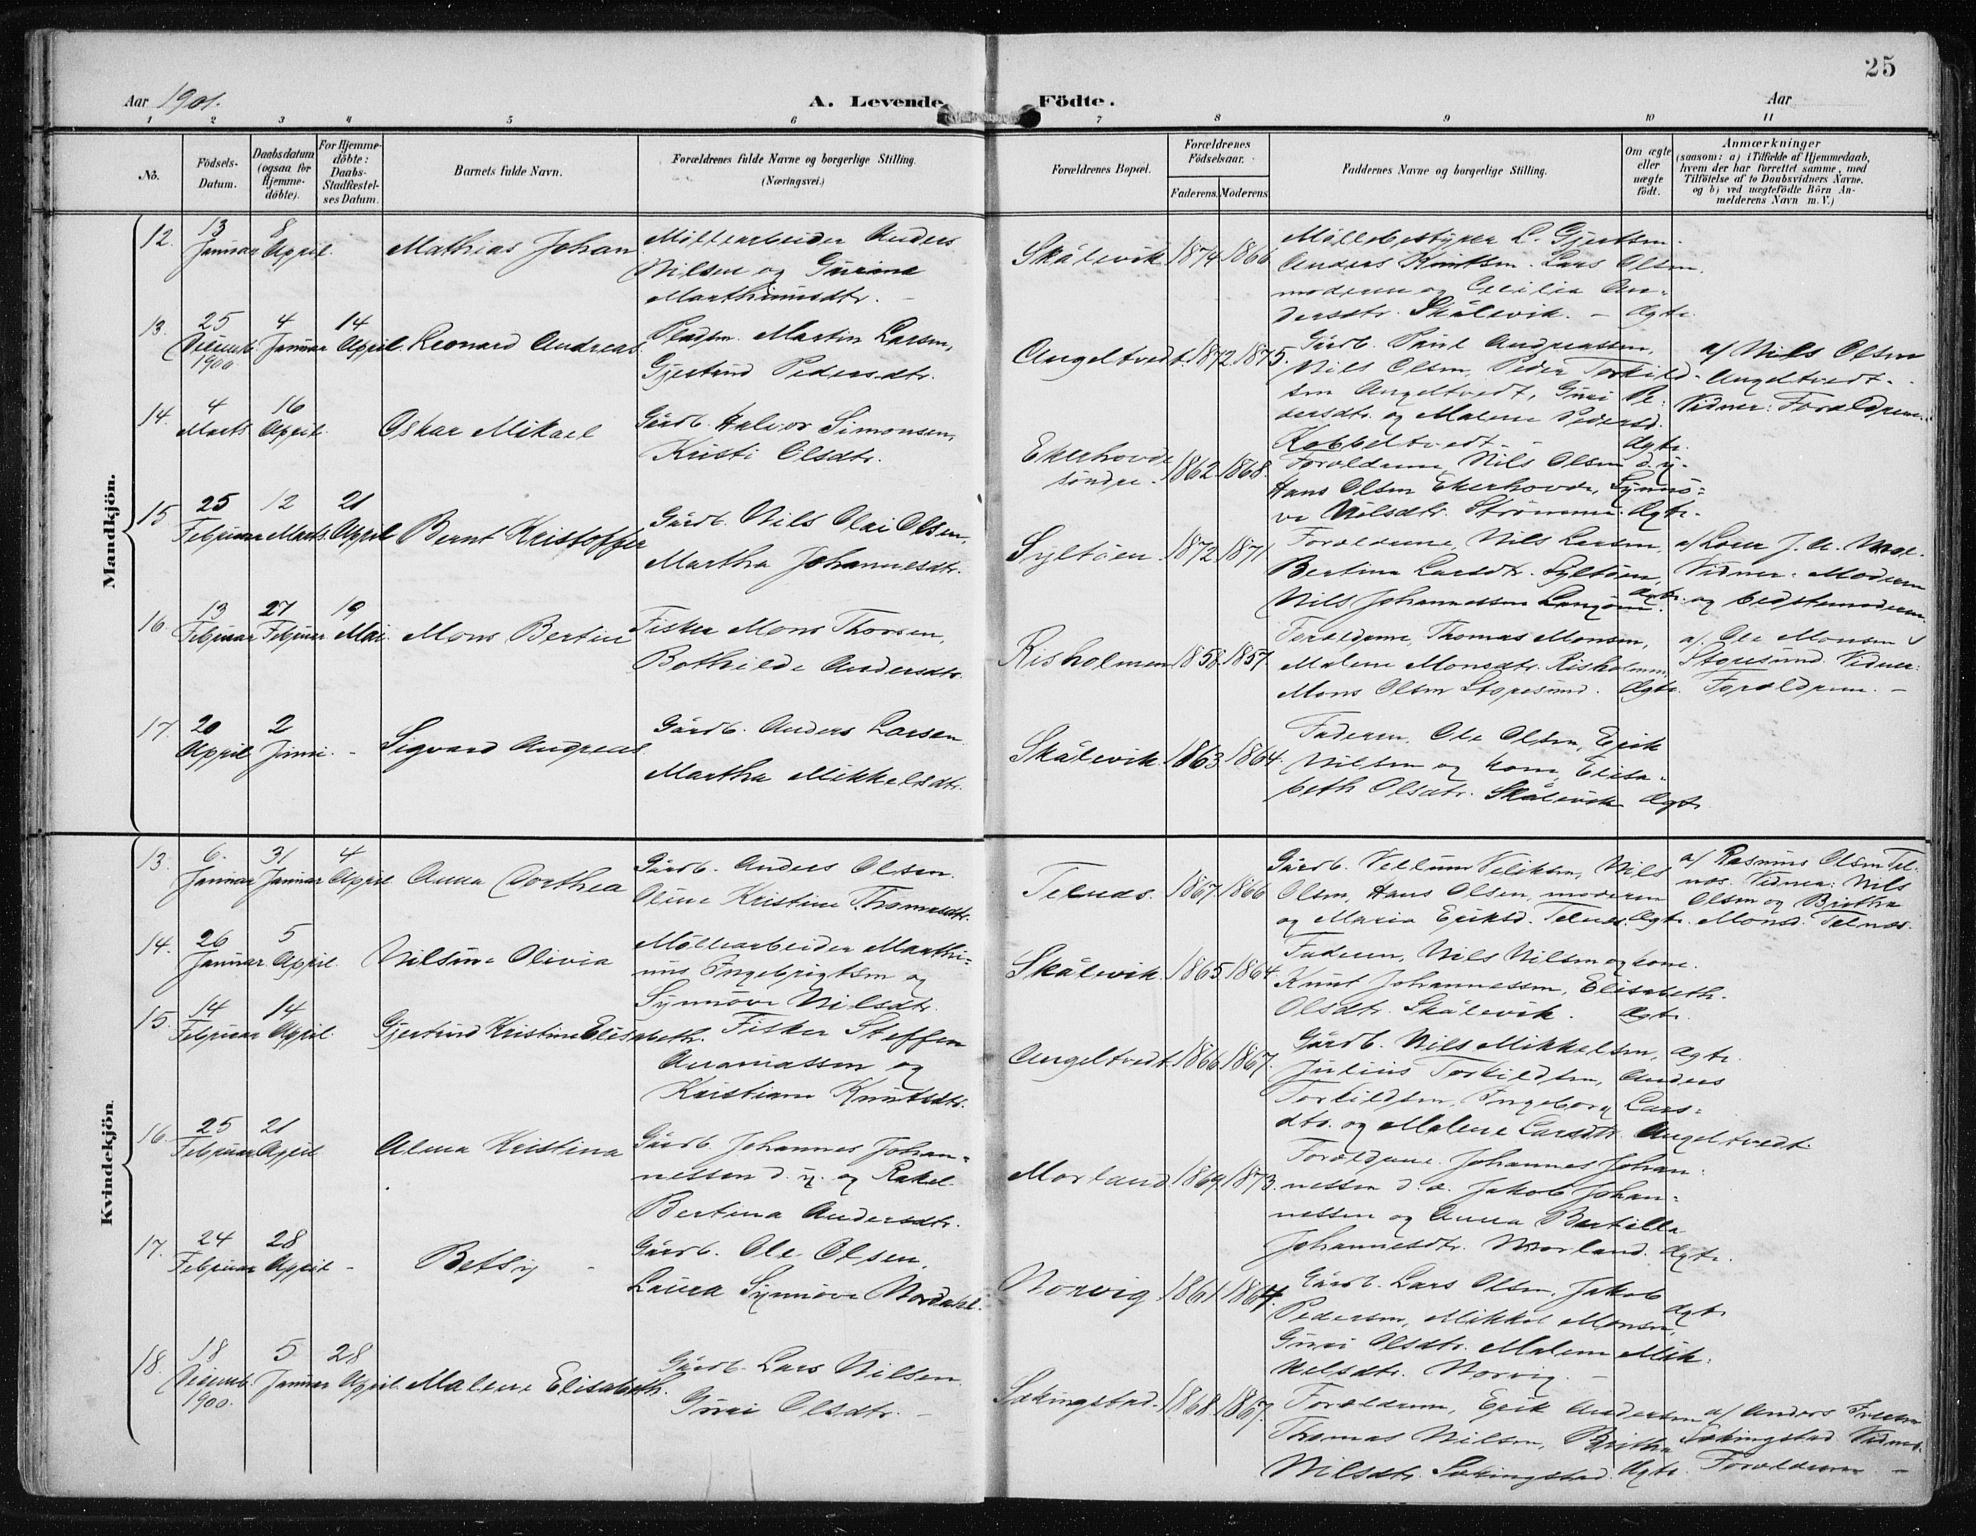 25
Aar 1901.
A. Levende Födte.
Aar
1 2 3 4 5 6 7 8 9 10 11
No.
Födsels-Datum.
Daabsdatum (ogsaa for Hjemme-döbte).
For Hjemme-döbte: Daabs-Stadfæstel-ses Datum.
Barnets fulde Navn.
Forældrenes fulde Navne og borgerlige Stilling.
(Næringsvei.)
Forældrenes Bopæl.
Forældrenes Födselsaar.
Faderens. Moderens.
Faddernes Navne og borgerlige Stilling.
Om ægte eller uægte födt.
Anmærkninger
(saasom: a) i Tilfælde af Hjemmedaab,
hvem der har forrettet samme, med
Tilföielse af to Daabsvidners Navne,
og b) ved uægtefödte Börn An-
melderens Navn m. V.)
Mandkjön.
12. 13 Januar 8 April. Mathias Johan
Möllearbeider Anders
Nilsen og Gurine
Marthinusdtr. -
Skålevik 1874 1866
Möllebestyrer L. Gjertsen.
Anders Knutsen. Lars Olsen
moderen og Cecilia An-
dersdtr. Skålevik. - Ægte.
13. 25 Decemb. 1900 4 Januar 14 April. Leonard Andreas
Pladsm. Martin Larsen,
Gjertrud Pedersdtr.
Angeltvedt. 1872. 1875.
Gårdb. Paul Andreassen,
Nils Olsen, Peder Torkild-
sen Angeltvedt, Guri Pe-
dersdtr. og Malene Pedersd.
Kobbeltvedt. - Ægte.
a/ Nils Olsen
Angeltvedt.
Vidner: Forældrene.
14. 4 Marts 16 April. Oskar Mikael
Gårdb. Halvor Simonsen,
Kristi Olsdtr.
Ekerhovde söndre. 1862 1868.
Forældrene, Nils Olsen d. y.
Hans Olsen Ekerhovde, Synnö-
ve Nilsdtr. Strömme. Ægte.
15 25 Februar 12 Marts. 21 April Bernt Kristoffer
Gårdb. Nils Olai Olsen,
Martha Johannesdtr.
Syltöen. 1872 1871
Forældrene, Nils Larsen,
Bertina Larsdtr. Syltöen,
Nils Johannessen Langöen. Ægte.
Vidner: Moderen
og bedstemoderen
16. 13 Februar 27 Februar 19 Mai Mons Bertin
Fisker Mons Thorsen,
Bothilde Andersdtr.
Risholmen 1858. 1857.
Forældrene, Thomas Monsen,
Malene Monsdtr. Risholmen,
Mons Olsen Storesund. Ægte.
a/. Ole Monsen
Storesund. Vidner:
Forældrene. -
17. 20 April 2 Juni. - Sigvard Andreas
Gårdb. Anders Larsen
Martha Mikkelsdtr.
Skålevik. 1863. 1864.
Faderen, Ole Olsen, Erik
Nilsen og kone, Elisa-
beth Olsdtr. Skålevik Ægte
Kvindekjön.
13. 6. Januar 31 Januar 4 April Anna Dorthea
Gårdb. Anders Olsen
Oline Kristine Thomasdtr.
Telnæs. 1867. 1866
Gårdb. Vellum Villiksen, Nils
Olsen, Hans Olsen, moderen
og Maria Eriksd. Telnæs. Ægte.
a/ Rasmus Olsen Tel-
næs. Vidner: Nils
Olsen og Britha
Monsd. Telnæs.
14. 26 Januar. 5 April. Nilsine Olivia
Möllearbeider Marthi-
nus Ingebrigtsen og
Synnöve Nilsdtr.
Skålevik. 1865. 1864.
Faderen, Nils Nilsen og kone.
Knut Johannessen, Elisabeth
Olsdtr. Skålevik. Ægte.
15. 14 Februar 14 April. Gjertrud Kristine Elisabeth.
Fisker Steffen
Ananiassen og
Kristiane Knutsdtr.
Angeltvedt. 1866 1867.
Gårdb. Nils Mikkelsen, Ægte.
Julius Torkildsen, Anders
Torkildsen, Ingeborg Lars-
dtr. og Malene Larsdtr. Angeltvedt.
16. 25 Februar 21 April Alma Kristina
Gårdb. Johannes Johan-
nessen d. y. og Rakel
Bertina Andersdtr.
Morland 1869. 1873.
Forældrene. Johannes Johan-
nessen d. æ. Jakob Johan-
nessen og Anna Bertilla
Johannesdtr. Morland. Ægte.
17. 24 Februar 28 April - Betsy -
Gårdb. Ole Olsen,
Laura Synnöve Nordahl.
Norvig 1861 1864.
Gårdb. Lars Olsen, Jakob
Pedersen, Mikkel Monsen, Ægte
Guri Olsdtr. Malene Mik-
kelsdtr. Norvig. -
18. 18 Decemb. 1900. 5 Januar 28 April. Malene Elisabeth.
Gårdb. Lars Nilsen
Guri Olsdtr. -
Sækingstad. 1868. 1867.
Forældrene, Erik Andersen
Thomas Nilsen, Britha
Nilsdtr. Sækingstad. Ægte.
a/ Anders
Sækingstad. Vidner.
Forældrene -